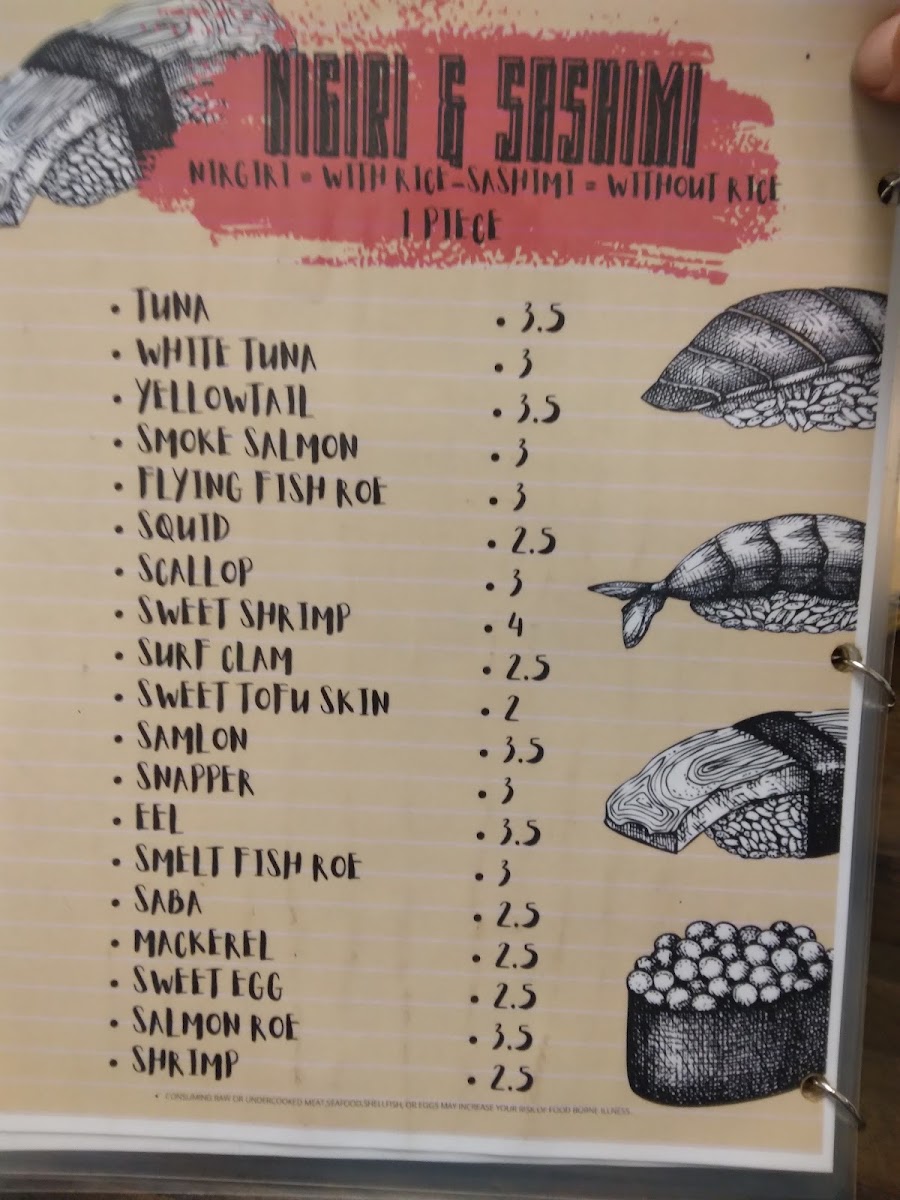 NIGIRI & SASHIMI
NIRGIRI = WITH RICE-SASHIMI = WITHOUT RICE
1 PIECE
• TUNA • 3.5
• WHITE TUNA • 3
• YELLOWTAIL • 3.5
• SMOKE SALMON • 3
• FLYING FISH ROE • 3
• SQUID • 2.5
• SCALLOP • 3
• SWEET SHRIMP • 4
• SURF CLAM • 2.5
• SWEET TOFU SKIN • 2
• SAMLON • 3.5
• SNAPPER • 3
• EEL • 3.5
• SMELT FISH ROE • 3
• SABA • 2.5
• MACKEREL • 2.5
• SWEET EGG • 2.5
• SALMON ROE • 3.5
• SHRIMP • 2.5
• CONSUMING RAW OR UNDERCOOKED MEAT,SEAFOOD,SHELLFISH, OR EGGS MAY INCREASE YOUR RISK OF FOOD BORNE ILLNESS.